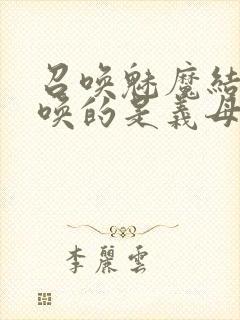 召唤魅魔结
唤的是義母
李麗雲